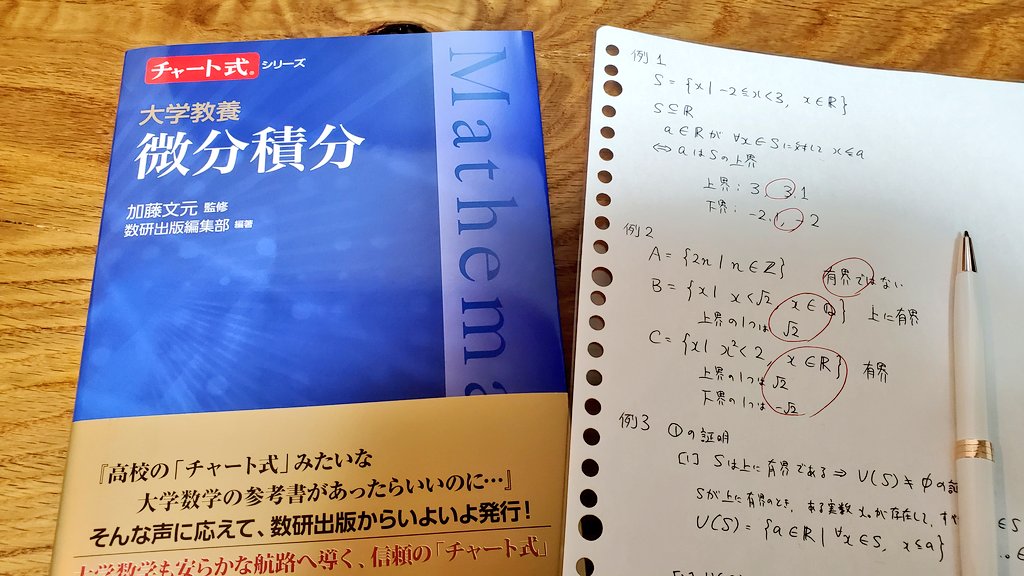 チャート式®シリーズ
大学教養
微分積分
加藤文元 監修
数研出版編集部 編著
Mathema
『高校の「チャート式」みたいな
大学数学の参考書があったらいいのに…』
そんな声に応えて、数研出版からいよいよ発行!
大学数学も安らかな航路へ導く、信頼の「チャート式」
例1
S = {x | -2≦x<3, x∈ℝ}
S⊆ℝ
a∈ℝが ∀x∈Sに対して x≦a
⇔ aはSの上界
上界: 3, 3.1
下界: -2.1, -2
例2
A = {2n | n∈ℤ} 有界ではない
B = {x | x<√2, x∈ℚ} 上に有界
上界の1つは √2
C = {x | x²<2, x∈ℝ} 有界
上界の1つは √2
下界の1つは -√2
例3 ①の証明
[1] Sは上に有界である ⇒ U(S)≠φの証
Sが上に有界のとき, ある実数 が存在して, すべ ∈S
U(S) = {a∈ℝ | ∀x∈S, x≦a}